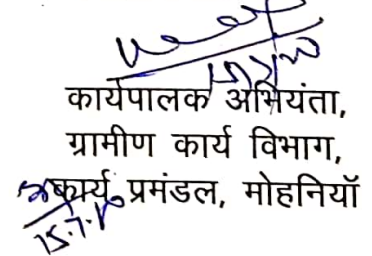 कार्यपालक अभियंता,
ग्रामीण कार्य विभाग,
कार्य प्रमंडल, मोहनियाॅ
15.7.